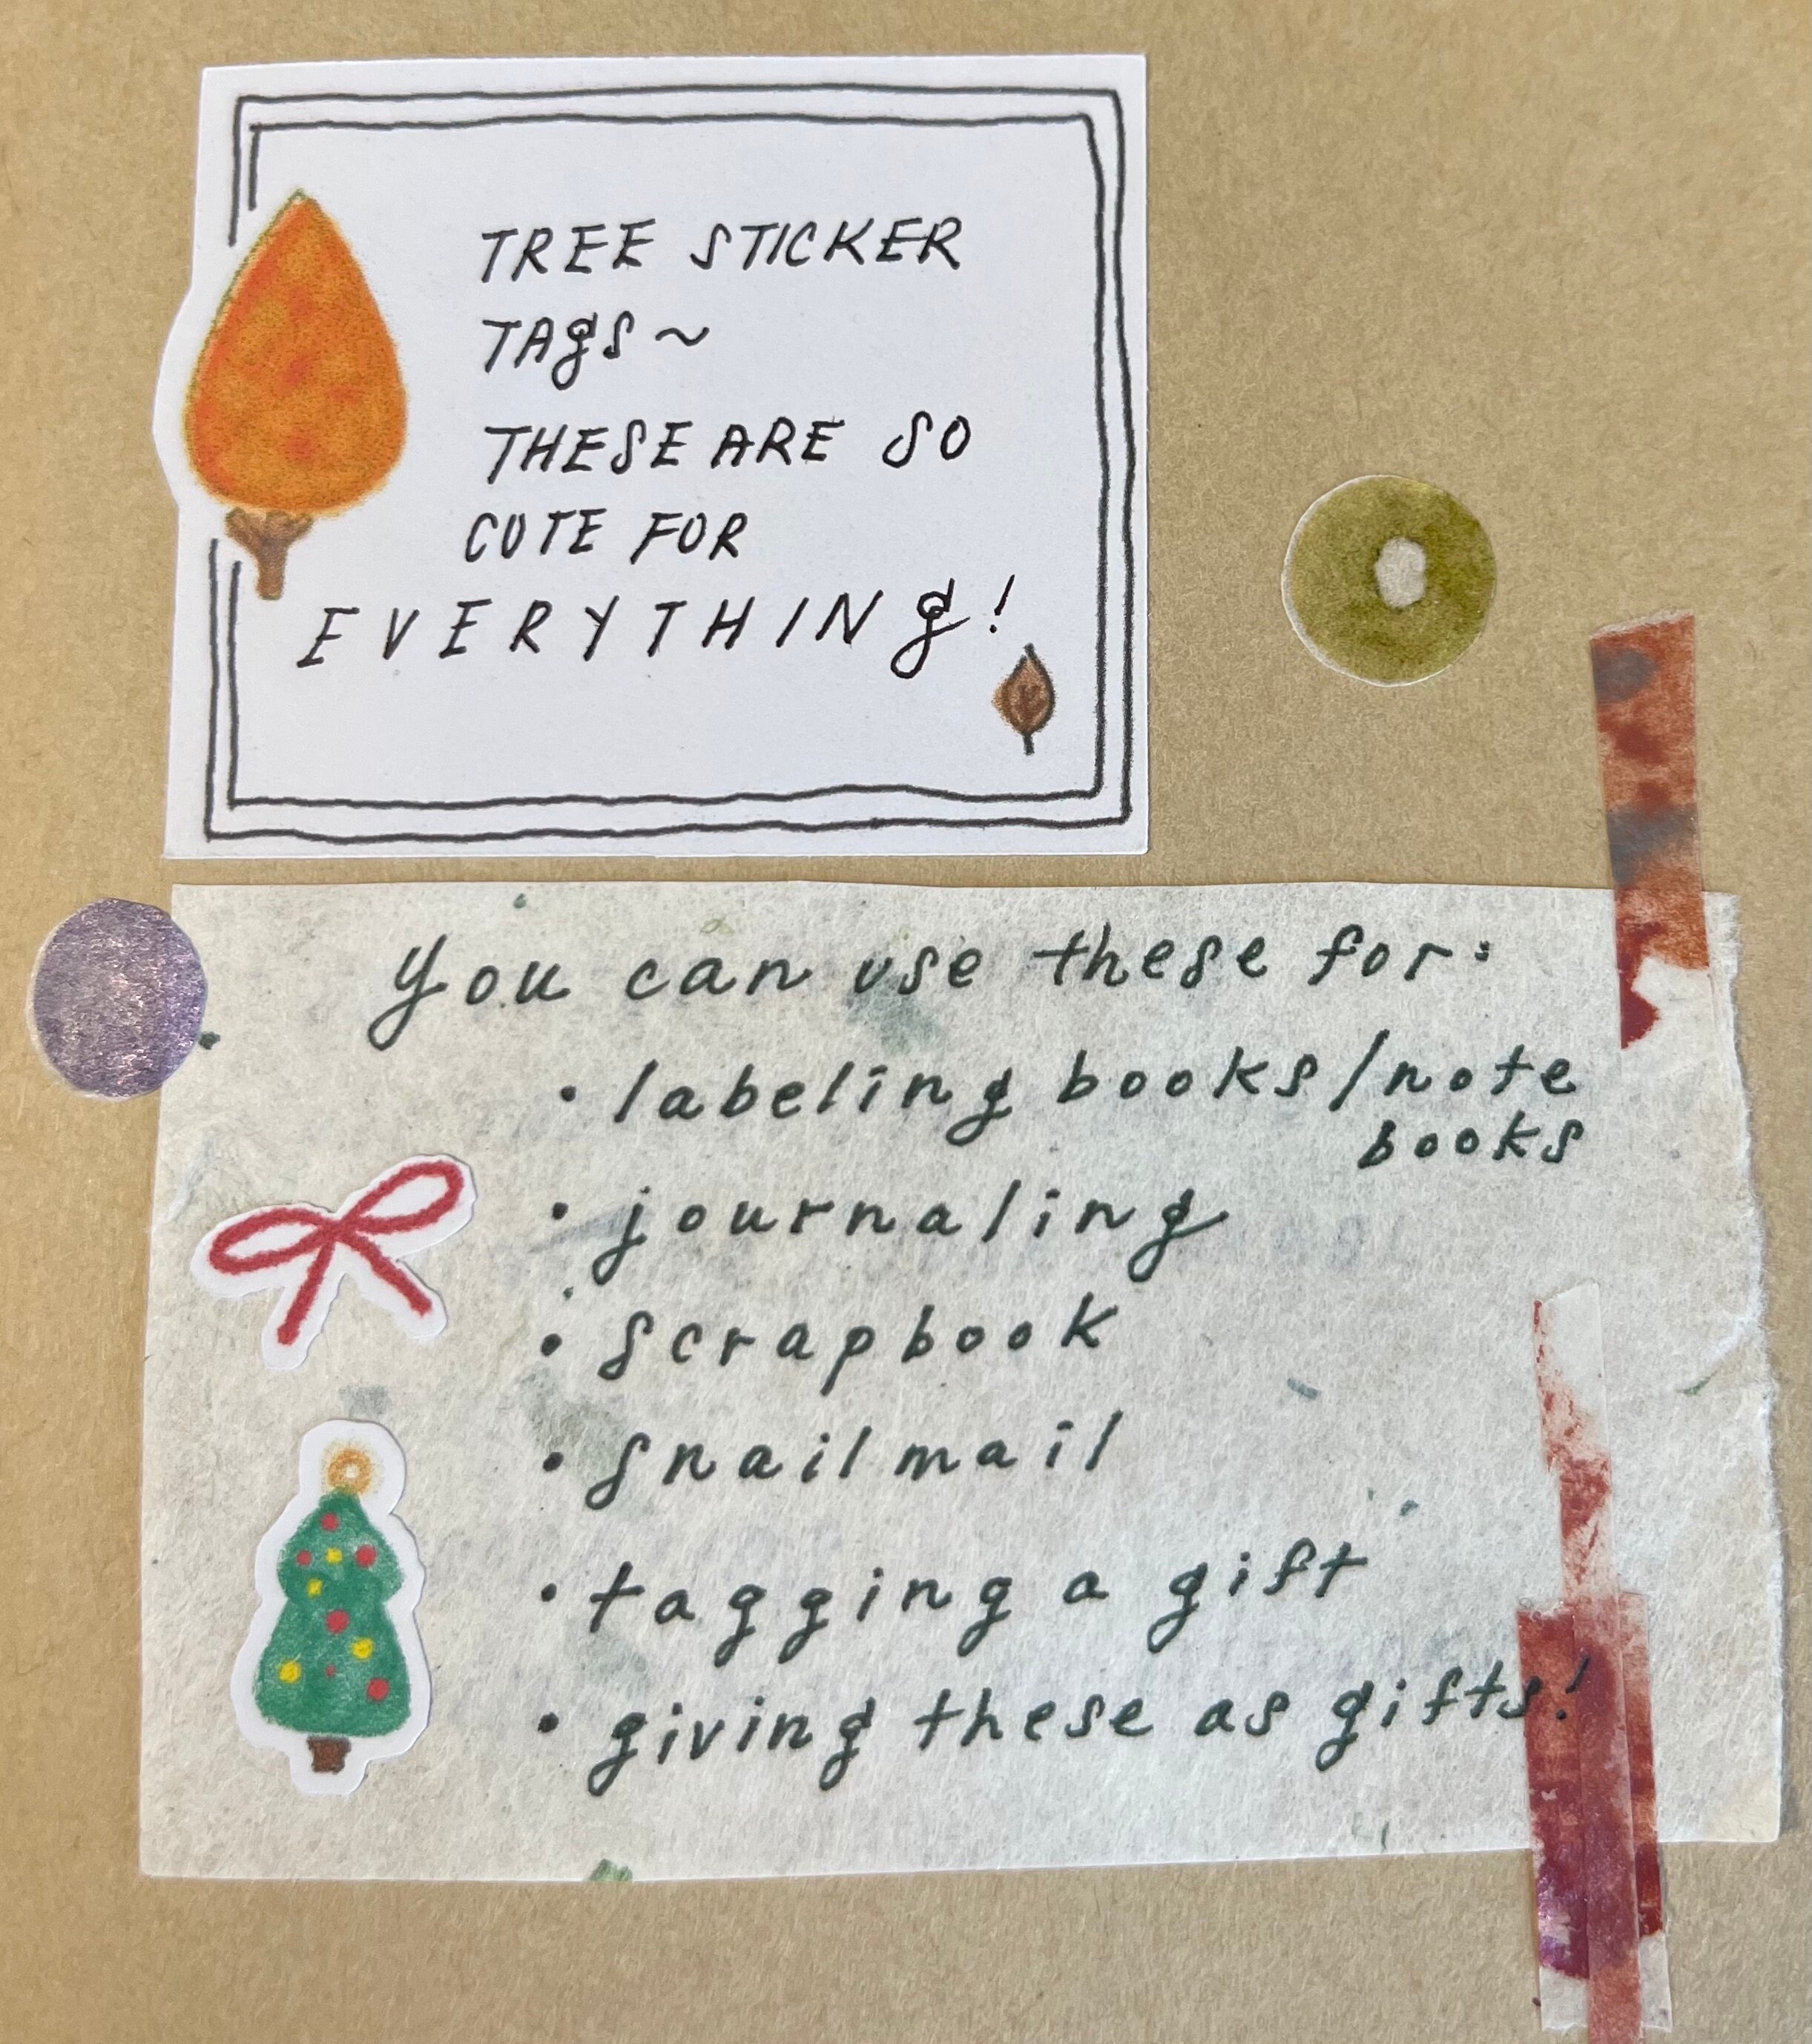 TREE STICKER
TAgS ~
THESE ARE SO
CUTE FOR
EVERYTHINg!
You can use these for:
• labeling books/note
books
• journaling
• scrapbook
• snail mail
• tagging a gift
• giving these as gifts!